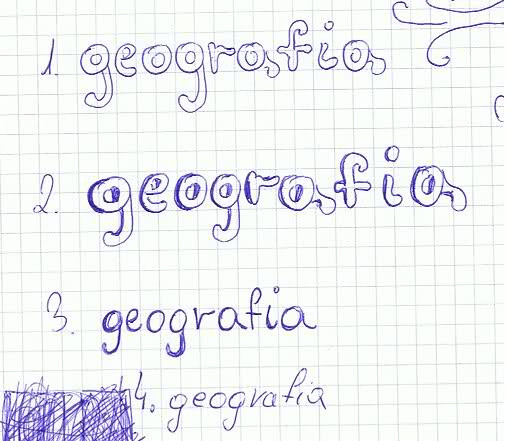 1. geografia
2. geografia
3. geografia
4. geografia